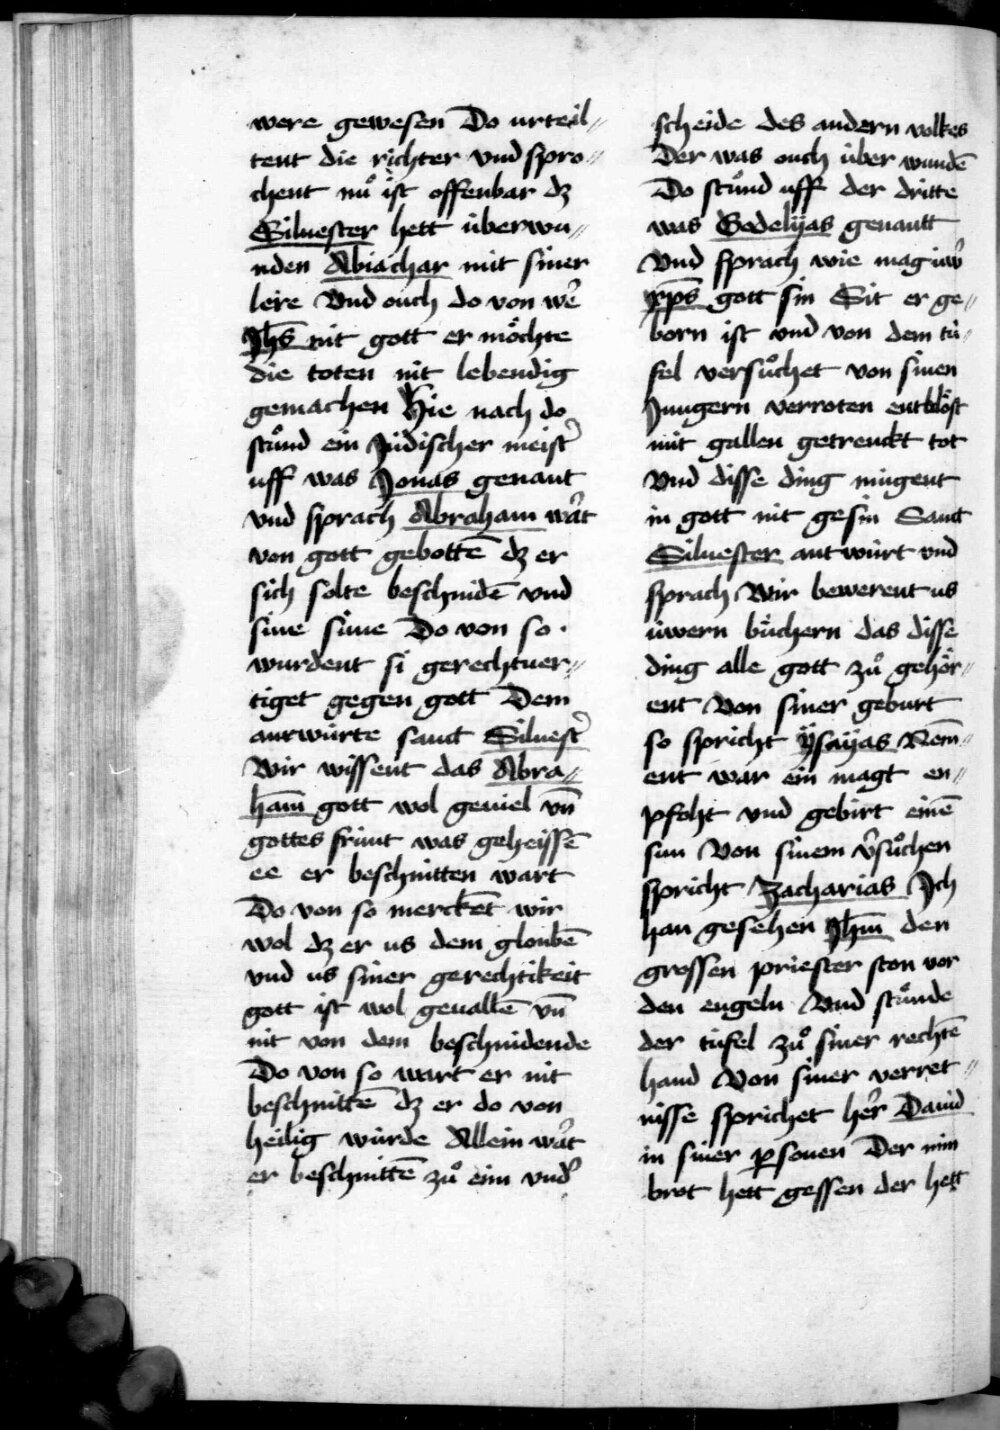 were gewesen Do urteil„
tent die richter vnd spro„
chent nuͦ ist offenbar dz
Siluester hett überwu„
nden Abiachar mit siner
lere Vnd ouch do von wer̉
Jhs̄ nit gott er möchte
die toten nit lebendig
gemachen Hie nach do
stuͦnd ein Jüdischer meist̉
uff was Jonas genant
vnd sprach Abraham wa̓rt
von gott gebottē dz er
sich solte beschnidē vnd
sine süne Do von so
wurdent si gerechtuer„
tiget gegen gott Dem
antwürte sanct Siluest̉
Wir wissent das Abra„
ham̄ gott wol geuiel vn̄
gottes frünt was geheissē
ee er beschnitten wart
Do von so merckēt wir
wol dz er us dem gloubē
vnd us siner gerechtikeit
gott ist wol geuallē vn̄
nit von dem beschnidende
Do von so wart er nit
beschnittē dz er do von
heilig würde Allein wa̓rt
er beschnittē zuͦ eim vnd̉
scheide des andern volkes
Der was ouch über wundē
Do stuͦnd uff der dritte
was Godelÿas genantt
Vnd sprach wie mag üw̉
xp̄s gott sin Sit er ge„
born ist vnd von dem tü„
fel versuͦchet von sinen
Jungern verroten entblöst
mit gallen getrenckt tot
Vnd disse ding mügent
in gott nit gesin Sanct
Siluester antwürt vnd
sprach Wir bewerent us
üwern büchern das disse
ding alle gott zuͦ gehör„
ent Von siner geburt
so spricht ÿsaÿas Nem̄„
ent war ein magt en„
pfoht vnd gebirt einē
sun Von sinem v̉suͦchen
spricht Zacharias Jch
han gesehen Jhm̄ den
grossen priester ston vor
den engeln Vnd stuͦnde
der tüfel zuͦ siner rechtē
hand Von siner verret„
nisse sprichet her̉ Dauid
in siner ꝑsonen Der min
brot hett gessen der hett